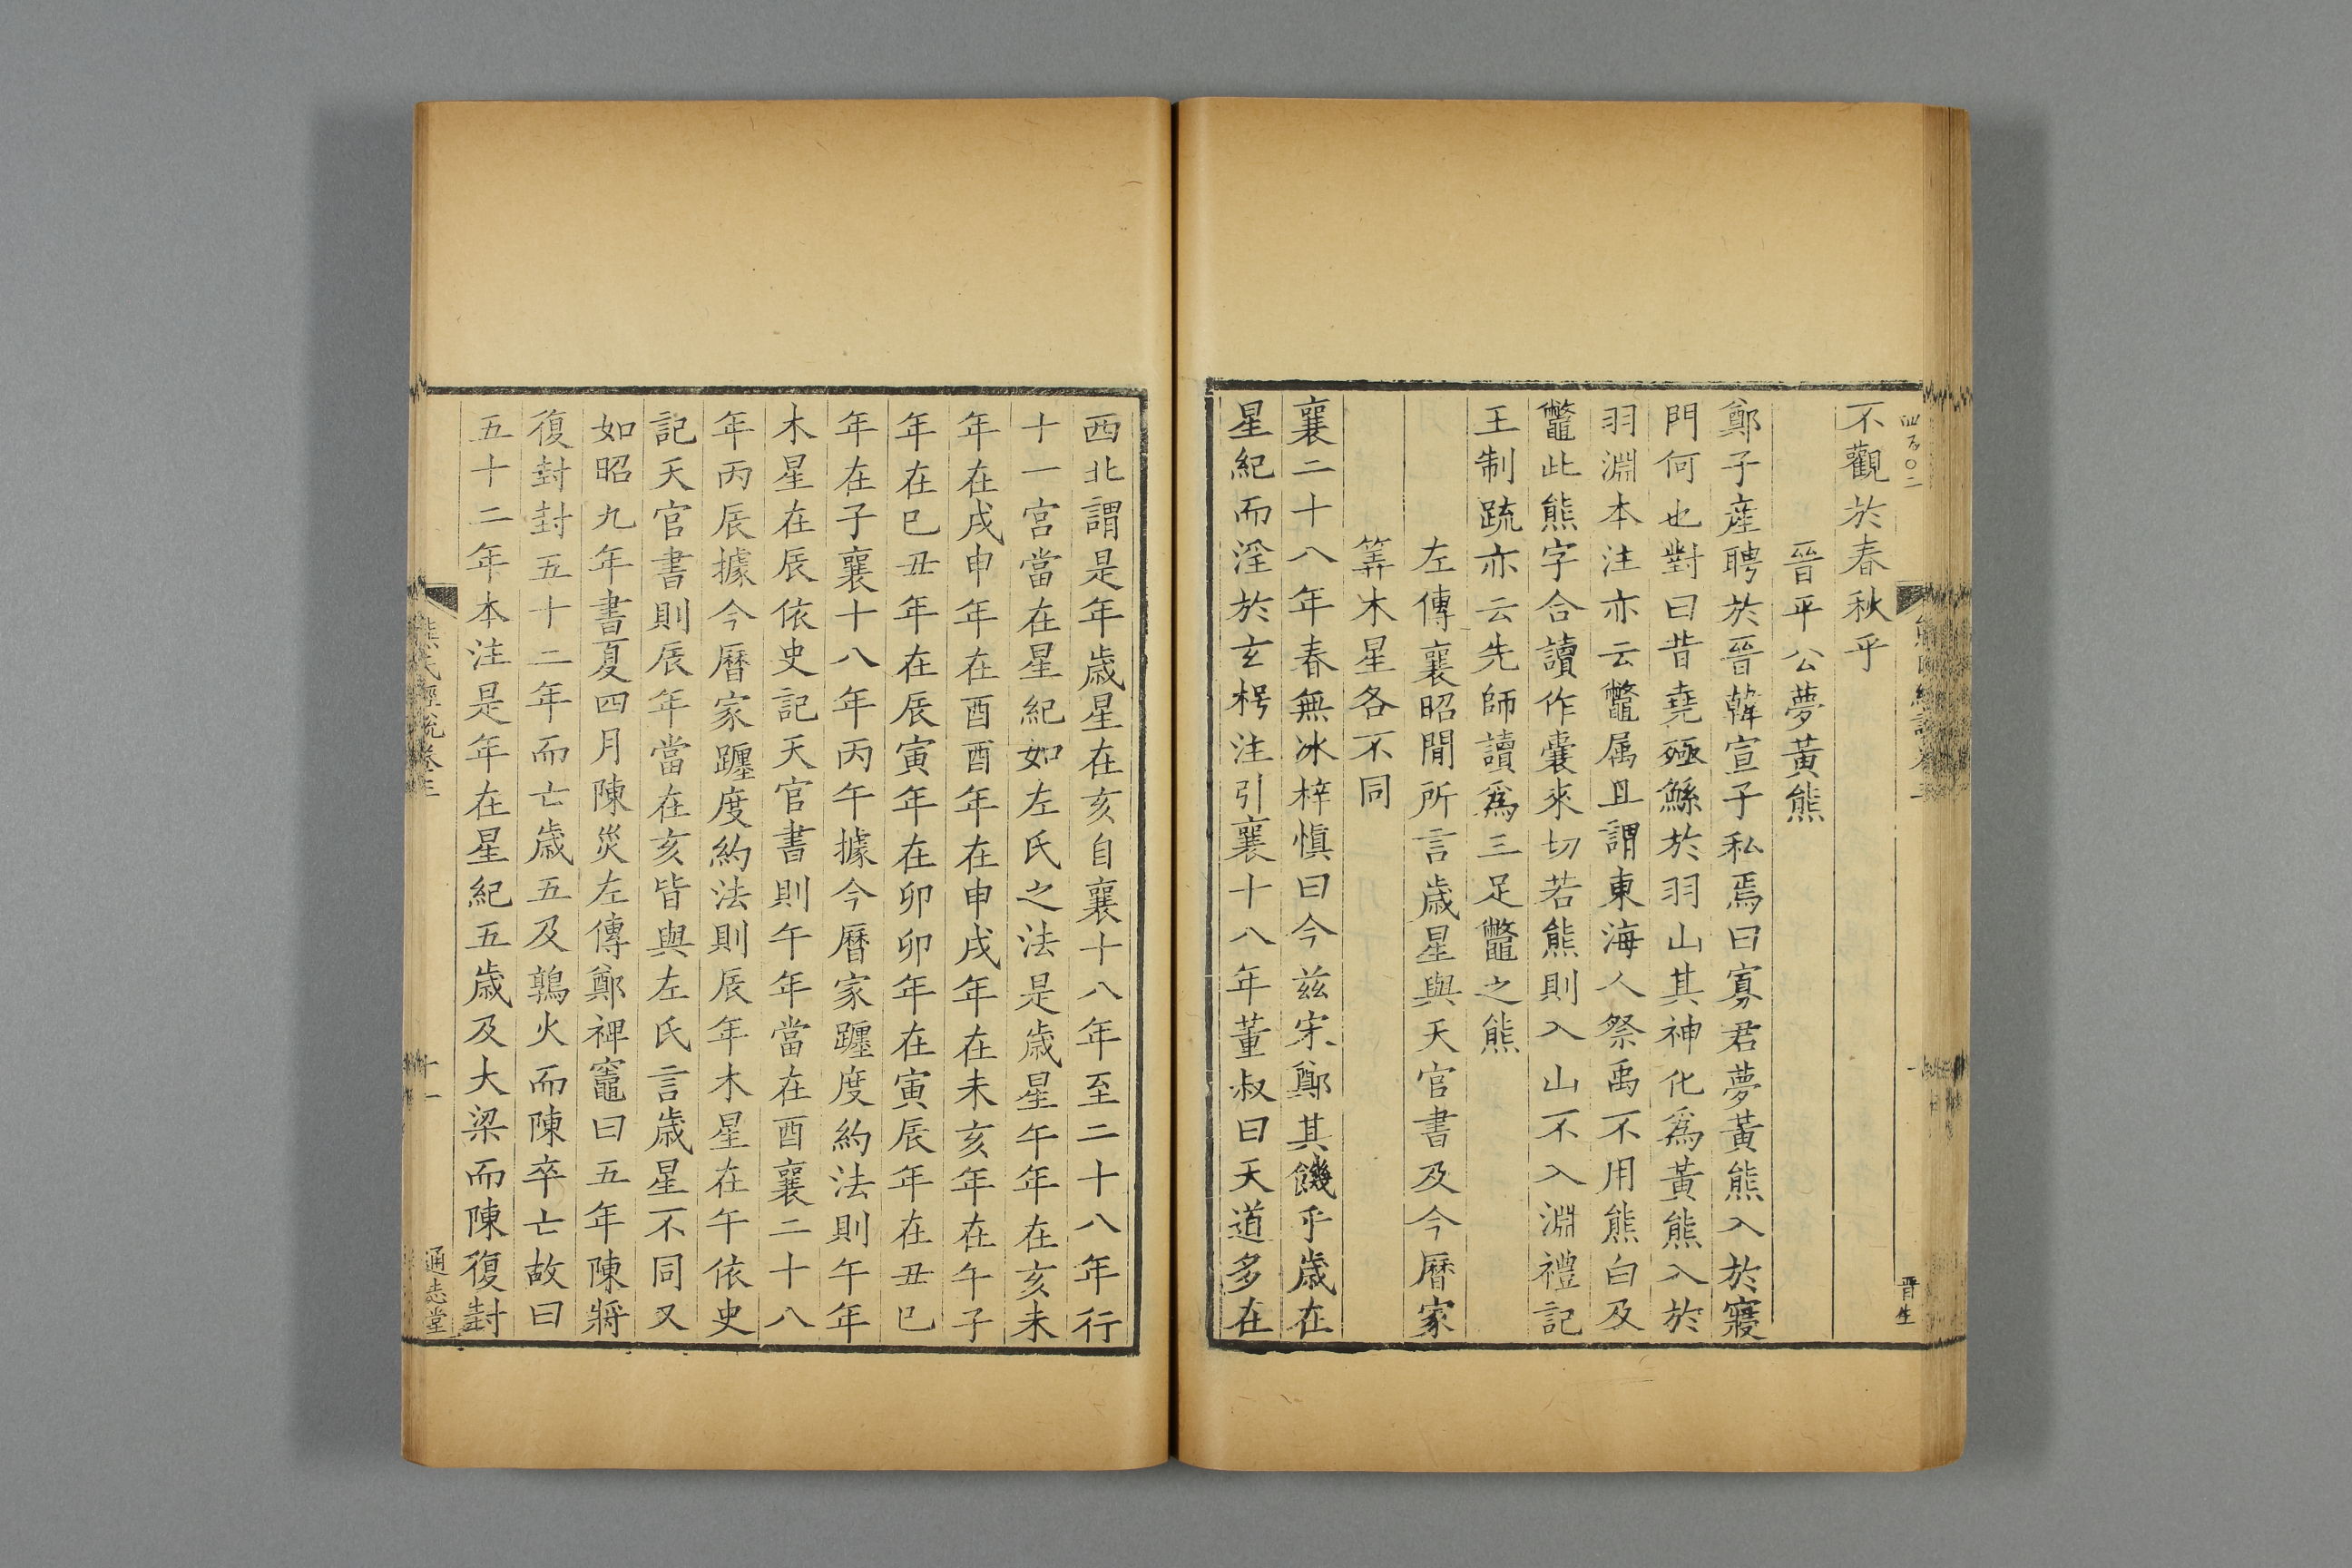 不觀於春秋乎
晉平公夢黃熊
鄭子產聘於晉韓宣子私焉曰寡君夢黃熊入於寢
門何也對曰昔堯殛鯀於羽山其神化爲黃熊入於
羽淵本注亦云鼈屬且謂東海人祭禹不用熊白及
鼈此熊字合讀作囊來切若熊則入山不入淵禮記
王制䟽亦云先師讀爲三足鼈之熊
左傳襄昭閒所言歲星與天官書及今曆家
筭木星各不同
襄二十八年春無冰梓慎曰今兹宋鄭其饑乎歲在
星紀而淫於玄枵注引襄十八年董叔曰天道多在
晋生
西北謂是年歲星在亥自襄十八年至二十八年行
十一宮當在星紀如左氏之法是歲星午年在亥未
年在戌申年在酉酉年在申戌年在未亥年在午子
年在巳丑年在辰寅年在卯卯年在寅辰年在丑巳
年在子襄十八年丙午據今曆家躔度約法則午年
木星在辰依史記天官書則午年當在酉襄二十八
年丙辰據今曆家躔度約法則辰年木星在午依史
記天官書則辰年當在亥皆與左氏言歲星不同又
如昭九年書夏四月陳災左傳鄭禆竈曰五年陳將
復封封五十二年而亡歲五及鶉火而陳卒亡故曰
五十二年本注是年在星紀五歲及大梁而陳復封
熊氏經說卷三
十一
通志堂